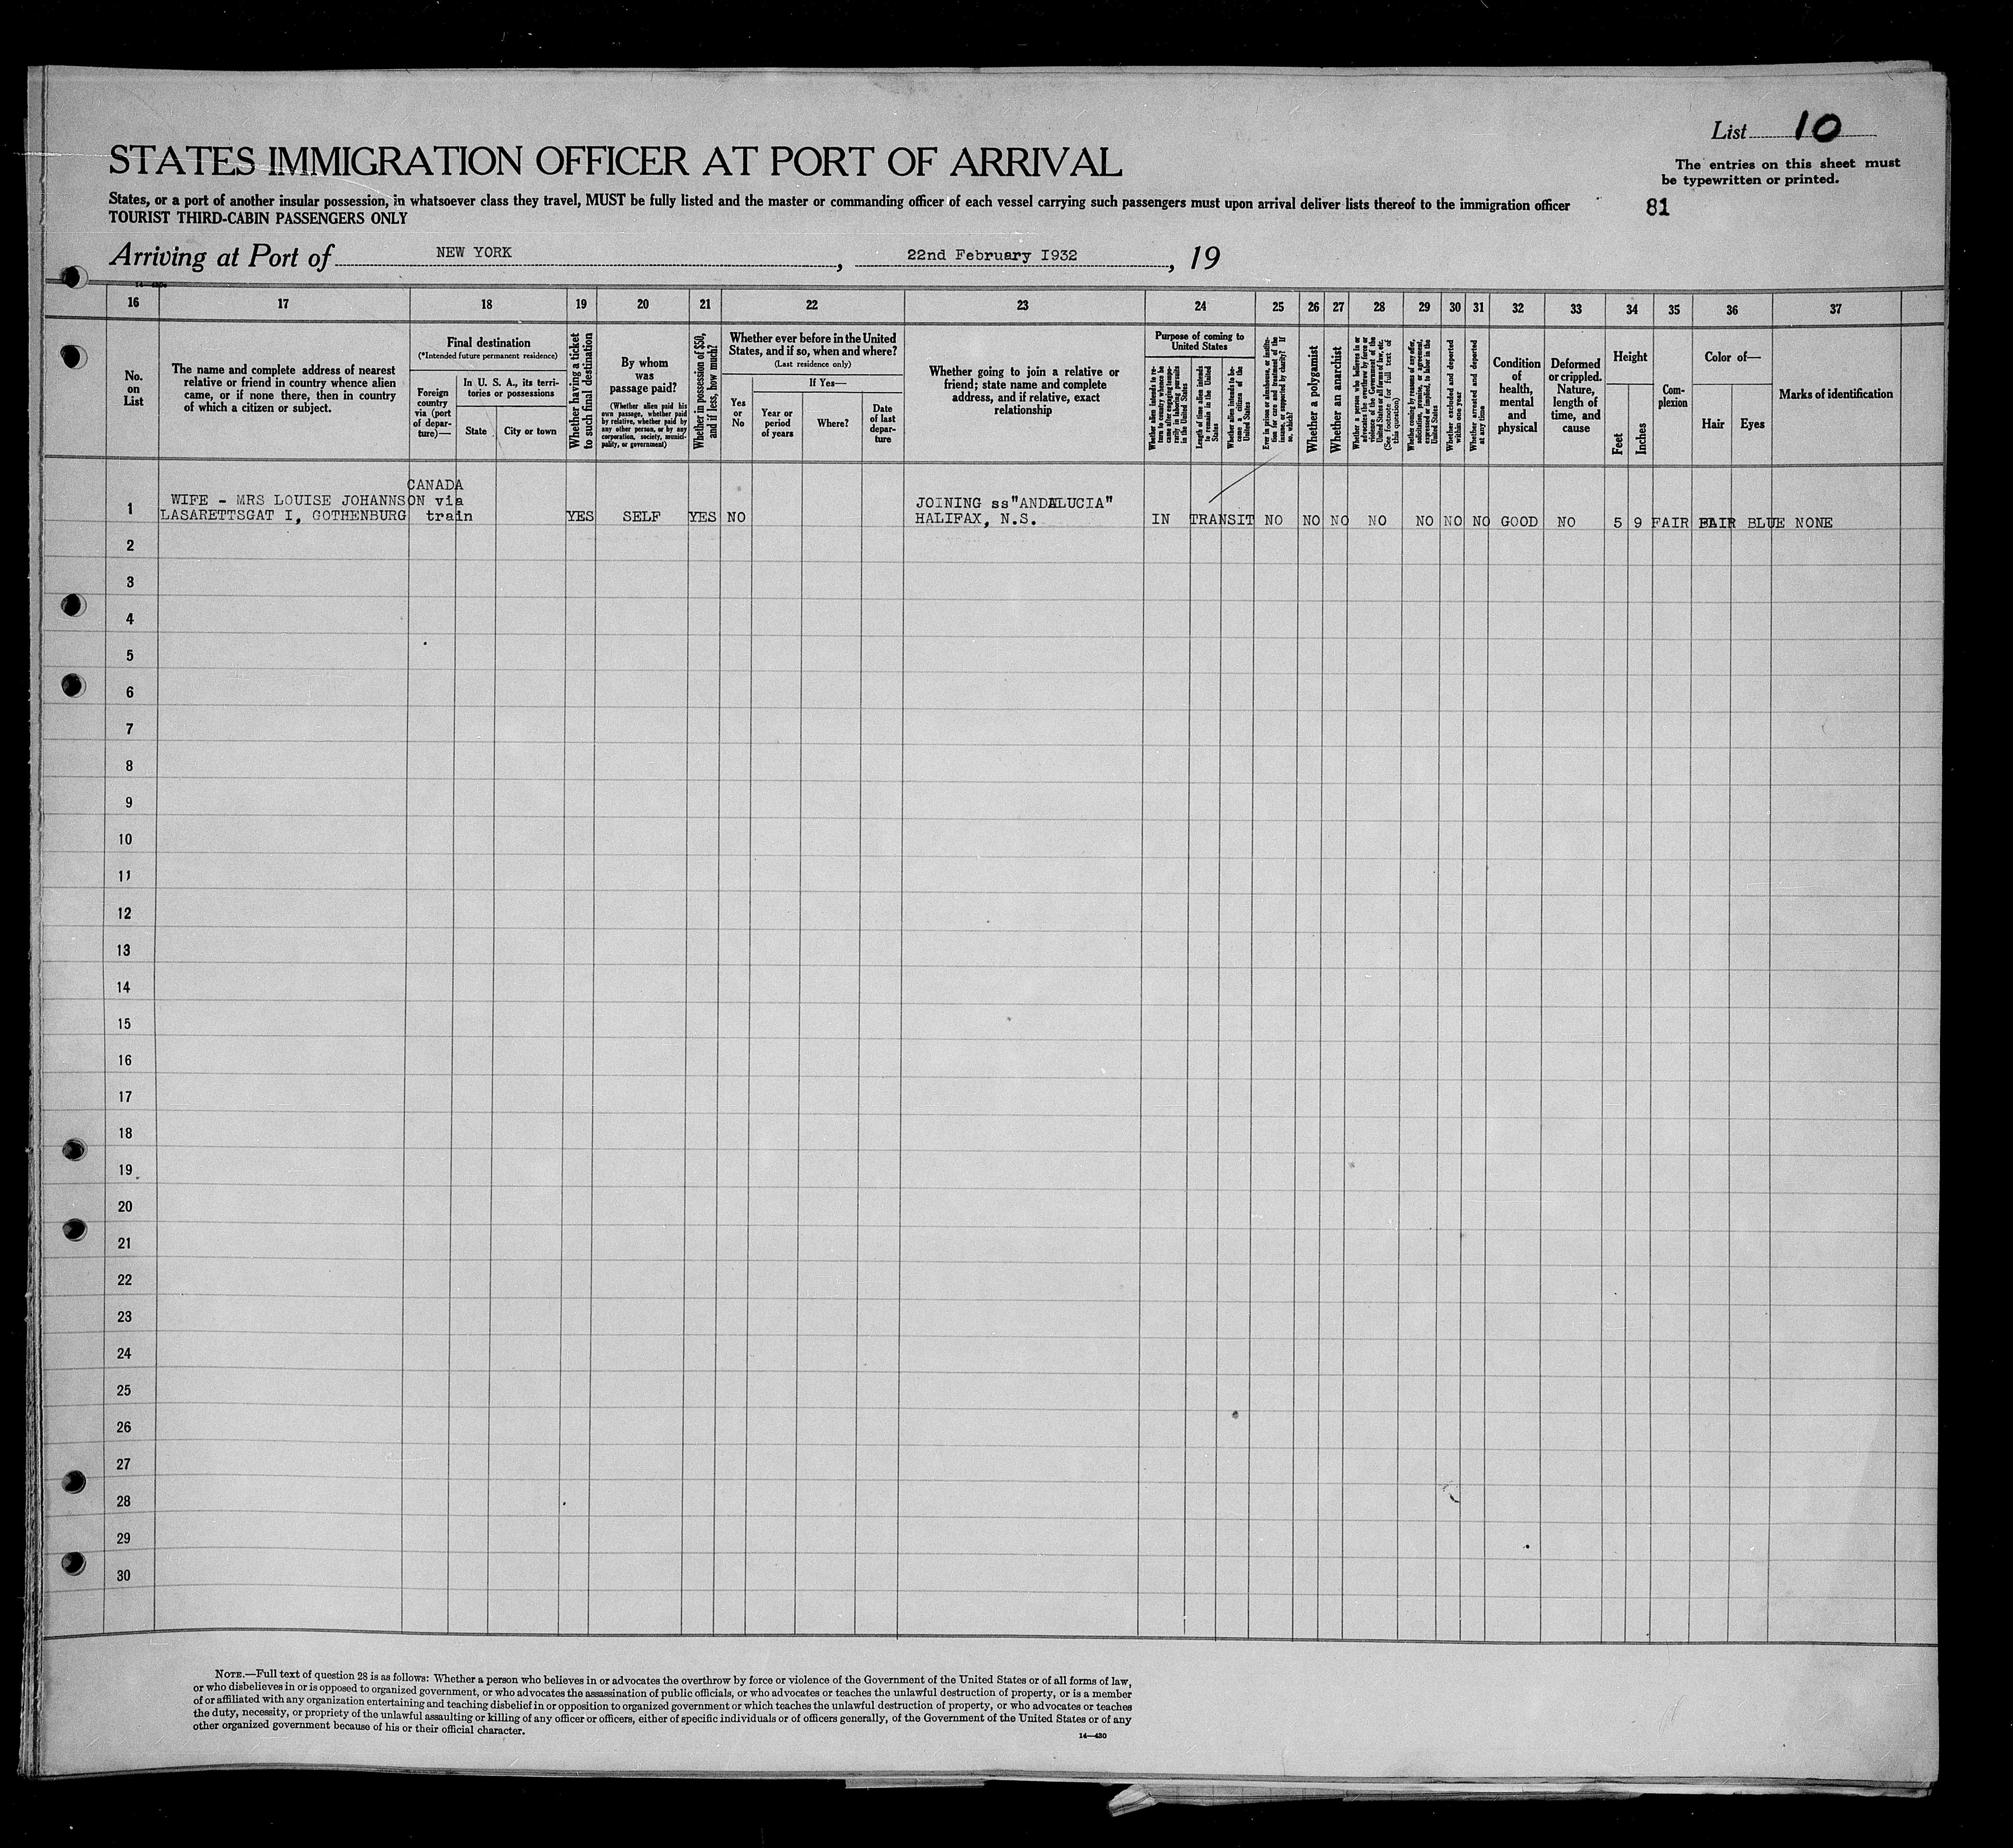 List 10
STATES IMMIGRATION OFFICER AT PORT OF ARRIVAL
The entries on this sheet must
be typewritten or printed.
States, or a port of another insular possession, in whatsoever class they travel, MUST be fully listed and the master or commanding officer of each vessel carrying such passengers must upon arrival deliver lists thereof to the immigration officer
81
TOURIST THIRD-CABIN PASSENGERS ONLY
Arriving at Port of NEW YORK, 22nd February I932, 19
16 17 18 19 20 21 22 23 24 25 26 27 28 29 30 31 32 33 34 35 36 37
No.
on
List
The name and complete address of nearest
relative or friend in country whence alien
came, or if none there, then in country
of which a citizen or subject.
Final destination
(*Intended future permanent residence)
Foreign
country
via (port
of depar-
ture)—
In U. S. A., its terri-
tories or possessions
State
City or town
Whether having a ticket
to such final destination
By whom
was
passage paid?
(Whether alien paid his
own passage, whether paid
by relative, whether paid by
any other person, or by any
corporation, society, munici-
pality, or government)
Whether in possession of $50,
and if less, how much?
Whether ever before in the United
States, and if so, when and where?
(Last residence only)
Yes
or
No
If Yes—
Year or
period
of years
Where?
Date
of last
depar-
ture
Whether going to join a relative or
friend; state name and complete
address, and if relative, exact
relationship
Purpose of coming to
United States
Whether alien intends to re-
turn to country whence he
came after engaging tempo-
rarily in laboring pursuits
in the United States
Length of time alien intends
to remain in the United
States
Whether alien intends to be-
come a citizen of the
United States
Ever in prison or almshouse, or institu-
tion for care and treatment of the
insane, or supported by charity? If
so, which?
Whether a polygamist
Whether an anarchist
Whether a person who believes in or
advocates the overthrow by force or
violence of the Government of the
United States or all forms of law, etc.
(See footnote for full text of
this question)
Whether coming by reasons of any offer,
solicitation, promise, or agreement,
expressed or implied, to labor in the
United States
Whether excluded and deported
within one year
Whether arrested and deported
at any time
Condition
of
health,
mental
and
physical
Deformed
or crippled.
Nature,
length of
time, and
cause
Height
Feet
Inches
Com-
plexion
Color of—
Hair
Eyes
Marks of identification
CANADA
1 WIFE - MRS LOUISE JOHANNSON via JOINING ss"ANDALUCIA"
LASARETTSGAT I, GOTHENBURG train YES SELF YES NO HALIFAX, N.S. IN TRANSIT NO NO NO NO NO NO NO GOOD NO 5 9 FAIR FAIR BLUE NONE
2
3
4
5
6
7
8
9
10
11
12
13
14
15
16
17
18
19
20
21
22
23
24
25
26
27
28
29
30
NOTE.—Full text of question 28 is as follows: Whether a person who believes in or advocates the overthrow by force or violence of the Government of the United States or of all forms of law,
or who disbelieves in or is opposed to organized government, or who advocates the assassination of public officials, or who advocates or teaches the unlawful destruction of property, or is a member
of or affiliated with any organization entertaining and teaching disbelief in or opposition to organized government or which teaches the unlawful destruction of property, or who advocates or teaches
the duty, necessity, or propriety of the unlawful assaulting or killing of any officer or officers, either of specific individuals or of officers generally, of the Government of the United States or of any
other organized government because of his or their official character.
14—430